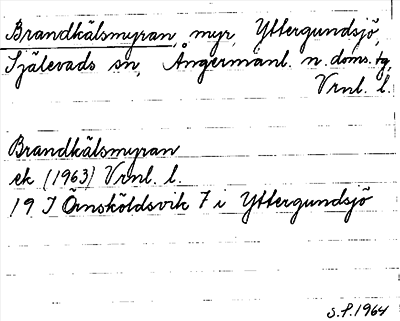 Brandkälsmyran, myr, Yttergundsjö,
Själevads sn, Ångermanl. n. doms. tg,
Vrnl. l.
Brandkälsmyran
ek (1963) Vrnl. l.
19 J Örnsköldsvik 7 i Yttergundsjö
S.P. 1964